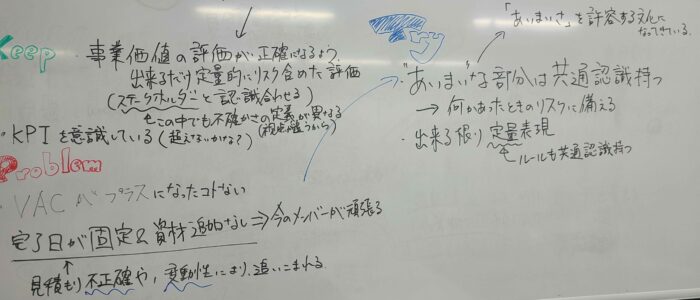 Keep
・事業価値の評価が正確になるよう、
出来るだけ定量的にリスク含めた評価
(ステークホルダーと認識合わせる)
この中でも不確かさの定義が異なる
(視点違うから)
・KPIを意識している(超えないかな?)
Problem
・VACがプラスになったコトない
完了日が固定&資材追加なし⇒今のメンバーが頑張る
↑
見積もり不正確や、変動性により、追いこまれる
Try
「あいまいさ」を許容する文化に
なってきている。
・"あいまい"な部分は共通認識持つ
→何かあったときのリスクに備える
・出来る限り定量表現
ルールも共通認識持つ